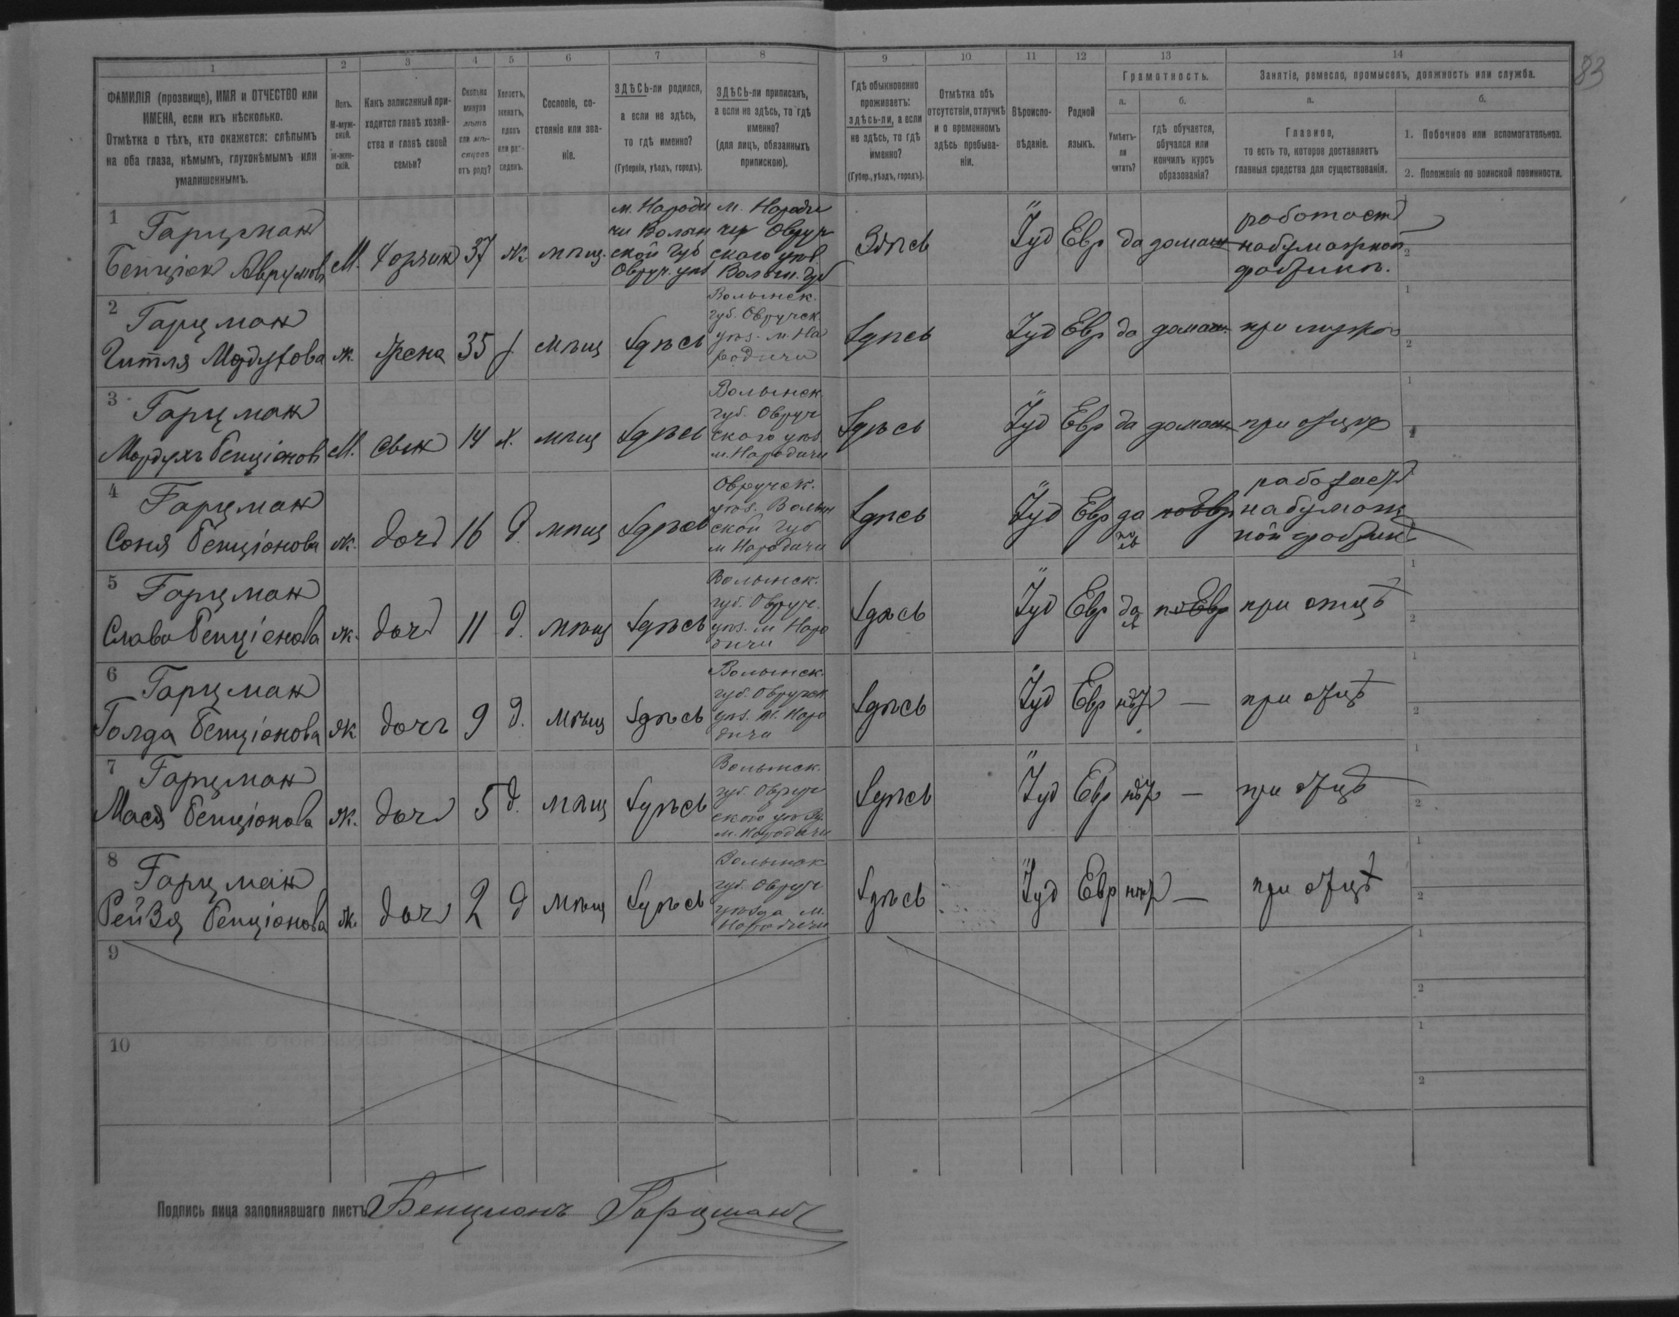 83
1 2 3 4 5 6 7 8 9 10 11 12 13 14
ФАМИЛІЯ (прозвище), ИМЯ и ОТЧЕСТВО или
ИМЕНА, если ихъ нѣсколько.
Отмѣтка о тѣхъ, кто окажется: слѣпымъ
на оба глаза, нѣмымъ, глухонѣмымъ или
умалишеннымъ.
Полъ.
М-муж-
ской.
Ж-жен-
скій.
Какъ записанный при-
ходится главѣ хозяй-
ства и главѣ своей
семьи?
Сколько
минуло
лѣтъ
или мѣ-
сяцевъ
отъ роду?
Холостъ,
женатъ,
вдовъ
или раз-
веденъ.
Сословіе, со-
стояніе или зва-
ніе.
ЗДѢСЬ-ли родился,
а если не здѣсь,
то гдѣ именно?
(Губернія, уѣздъ, городъ).
ЗДѢСЬ-ли приписанъ,
а если не здѣсь, то гдѣ
именно?
(для лицъ, обязанныхъ
припискою).
Гдѣ обыкновенно
проживаетъ:
здѣсь-ли, а если
не здѣсь, то гдѣ
именно?
(Губер., уѣздъ, городъ).
Отмѣтка объ
отсутствіи, отлучкѣ
и о временномъ
здѣсь пребыва-
ніи.
Вѣроиспо-
вѣданіе.
Родной
языкъ.
Грамотность.
а.
Умѣетъ-
ли
читать?
б.
гдѣ обучается,
обучался или
кончилъ курсъ
образованія?
Занятіе, ремесло, промыселъ, должность или служба.
а.
Главное,
то есть то, которое доставляетъ
главныя средства для существованія.
б.
1. Побочное или вспомогательное.
2. Положеніе по воинской повинности.
1
Гарцман
Бенціон Аврумов М. 37 ж. мѣщ.
м. Народи
чи Волын
ской губ
Овруч. уѣз
м. Народи
чи Овруч
ского уѣз
Волын. губ
Здѣсь Іуд Евр да домаш
работает
на бумажной
фабрике.
2
Гарцман
Гитля ж. жена 35 мѣщ Здѣсь
Волынск.
губ. Овручск.
уѣз. м. На
родичи
Здѣсь Іуд Евр да домаш при мужѣ
3
Гарцман
Мордухъ Бенціонов М. сын 14 х. мѣщ Здѣсь
Волынск
губ. Овруч
ского уѣз
м. Народичи
Здѣсь Іуд Евр да домаш при отцѣ
4
Гарцман
Соня Бенціонова ж. доч 16 д. мѣщ Здѣсь
Овручск.
уѣз. Волын
ской губ
м Народичи
Здѣсь Іуд Евр да по Евр
работает
на бумаж
ной фабрик
5
Гарцман
Слава Бенціонова ж. доч 11 д. мѣщ Здѣсь
Волынск.
губ. Овруч.
уѣз. м Наро
дичи
Здѣсь Іуд Евр да по Евр при отцѣ
6
Гарцман
Голда Бенціонова ж доч 9 д. мѣщ Здѣсь
Волынск
губ. Овручск
уѣз. м. Наро
дичи
Здѣсь Іуд Евр нѣт — при отцѣ
7
Гарцман
Мася Бенціонова ж. доч 5 д. мѣщ Здѣсь
Волынск.
губ. Овруч
ского уѣз
м. Народичи
Здѣсь Іуд Евр нѣт — при отцѣ
8
Гарцман
Рейзя Бенціонова ж. доч 2 д мѣщ Здѣсь
Волынск
губ. Овруч
уѣзда м.
Народичи
Здѣсь Іуд Евр нѣт — при отцѣ
9
10
Подпись лица заполнявшаго листъ Бенционъ Гарцманъ